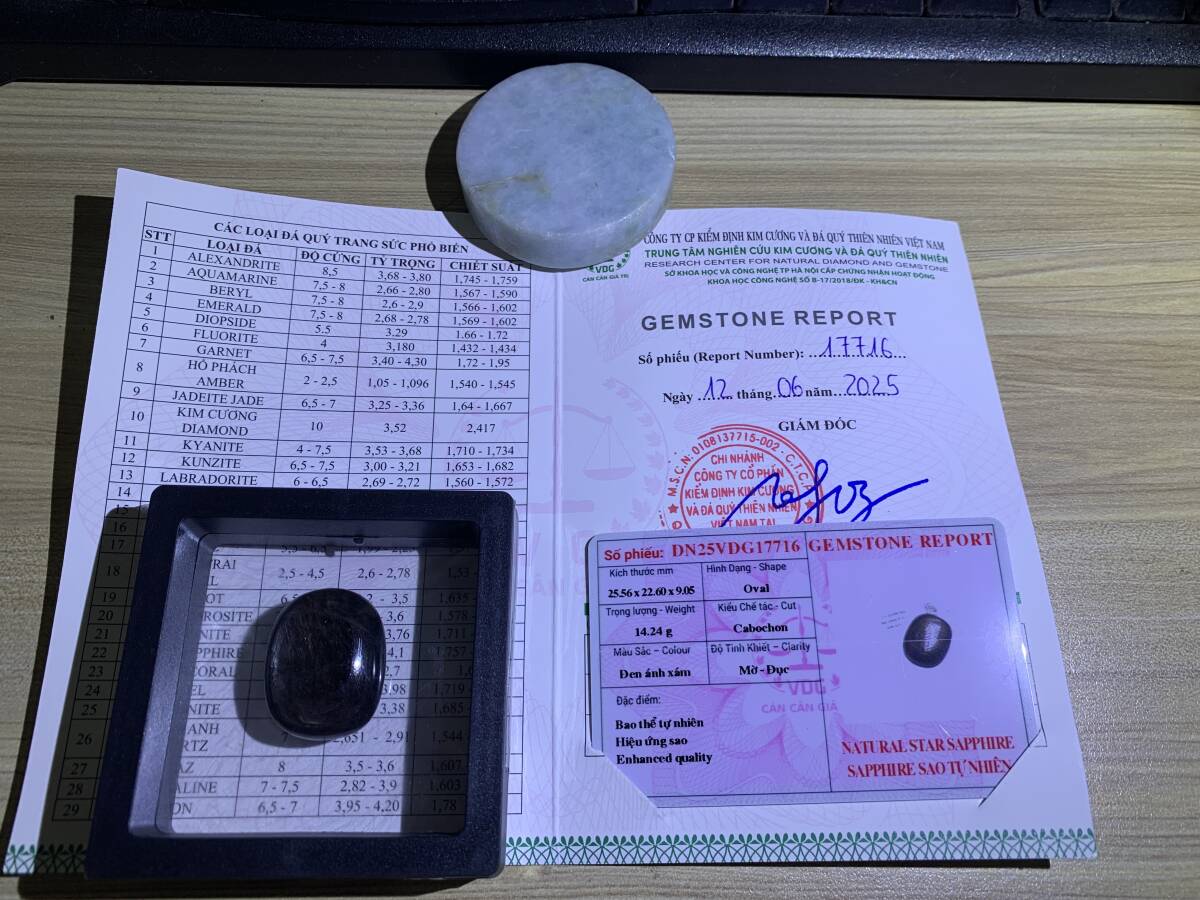 CÁC LOẠI ĐÁ QUÝ TRANG SỨC PHỔ BIẾN
STT LOẠI ĐÁ ĐỘ CỨNG TỶ TRỌNG CHIẾT SUẤT
1 ALEXANDRITE 8,5 3,68 - 3,80 1,745 - 1,759
2 AQUAMARINE 7,5 - 8 2,66 - 2,80 1,567 - 1,590
3 BERYL 7,5 - 8 2,6 - 2,9 1,566 - 1,602
4 EMERALD 7,5 - 8 2,68 - 2,78 1,569 - 1,602
5 DIOPSIDE 5.5 3.29 1.66 - 1.72
6 FLUORITE 4 3,180 1,432 - 1,434
7 GARNET 6,5 - 7,5 3,40 - 4,30 1,72 - 1,95
8 HỔ PHÁCH
AMBER 2 - 2,5 1,05 - 1,096 1,540 - 1,545
9 JADEITE JADE 6,5 - 7 3,25 - 3,36 1,64 - 1,667
10 KIM CƯƠNG
DIAMOND 10 3,52 2,417
11 KYANITE 4 - 7,5 3,53 - 3,68 1,710 - 1,734
12 KUNZITE 6,5 - 7,5 3,00 - 3,21 1,653 - 1,682
13 LABRADORITE 6 - 6,5 2,69 - 2,72 1,560 - 1,572
14
15
16
17
18 2,5 - 4,5 2,6 - 2,78 1,53
19
20 3,6 1,578
21 3,76 1,711
22 4,1
23 2,7
24 3,98 1,719
25 3,38 1,685
26 7 2,651 - 2,91 1,544
27 8 3,5 - 3,6 1,607
28 7 - 7,5 2,82 - 3,9 1,603
29 6,5 - 7 3,95 - 4,20 1,78
CÔNG TY CP KIỂM ĐỊNH KIM CƯƠNG VÀ ĐÁ QUÝ THIÊN NHIÊN VIỆT NAM
TRUNG TÂM NGHIÊN CỨU KIM CƯƠNG VÀ ĐÁ QUÝ THIÊN NHIÊN
RESEARCH CENTER FOR NATURAL DIAMOND AND GEMSTONE
SỞ KHOA HỌC VÀ CÔNG NGHỆ TP HÀ NỘI CẤP CHỨNG NHẬN HOẠT ĐỘNG
KHOA HỌC CÔNG NGHỆ SỐ B-17/2018/ĐK - KH&CN
VDG
CÁN CÂN GIÁ TRỊ
GEMSTONE REPORT
Số phiếu (Report Number): 17716
Ngày 12 tháng 06 năm 2025
GIÁM ĐỐC
M.S.C.N: 0108137715-002 - C.T.C.P
CHI NHÁNH
CÔNG TY CỔ PHẦN
KIỂM ĐỊNH KIM CƯƠNG
VÀ ĐÁ QUÝ THIÊN NHIÊN
VIỆT NAM TẠI
Số phiếu: DN25VDG17716 GEMSTONE REPORT
Kích thước mm
25.56 x 22.60 x 9.05
Hình Dạng - Shape
Oval
Trọng lượng - Weight
14.24 g
Kiểu Chế tác - Cut
Cabochon
Màu Sắc - Colour
Đen ánh xám
Độ Tinh Khiết - Clarity
Mờ - Đục
Đặc điểm:
Bao thể tự nhiên
Hiệu ứng sao
Enhanced quality
VDG
CÁN CÂN GIÁ
NATURAL STAR SAPPHIRE
SAPPHIRE SAO TỰ NHIÊN